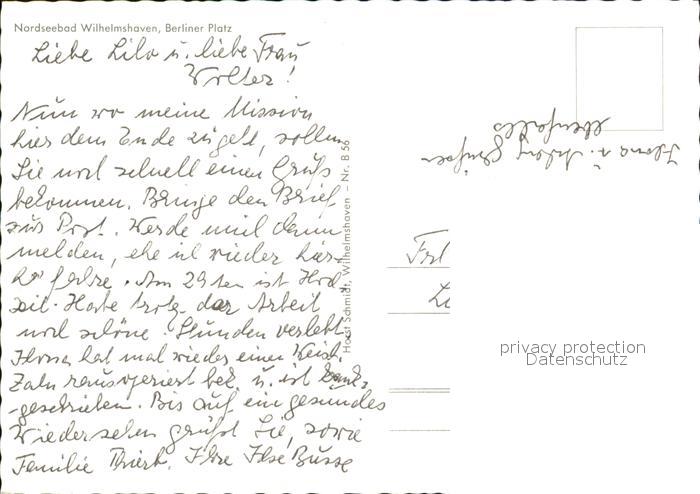 Nordseebad Wilhelmshaven, Berliner Platz
Liebe Lilo u. liebe Frau
Wolter!
Nun wo meine Mission
hier dem Ende zugeht, sollen
Sie noch schnell einen Gruß
bekommen. Bringe den Brief
zur Post. Werde mich dann
melden, ehe ich wieder hier-
her fahre. Am 29ten ist Hoch-
zeit. Habe trotz der Arbeit
noch schöne Stunden verlebt.
Ilona hat mal wieder einen
Zahn rausoperiert bek. u. ist krank-
geschrieben. Bis auf ein gesundes
Wiedersehen grüßt Sie, sowie
Familie Ihre Ilse Busse
Horst Schmidt, Wilhelmshaven – Nr. B 56
Ilona u.
ebenfalls
Frl
privacy protection
Datenschutz